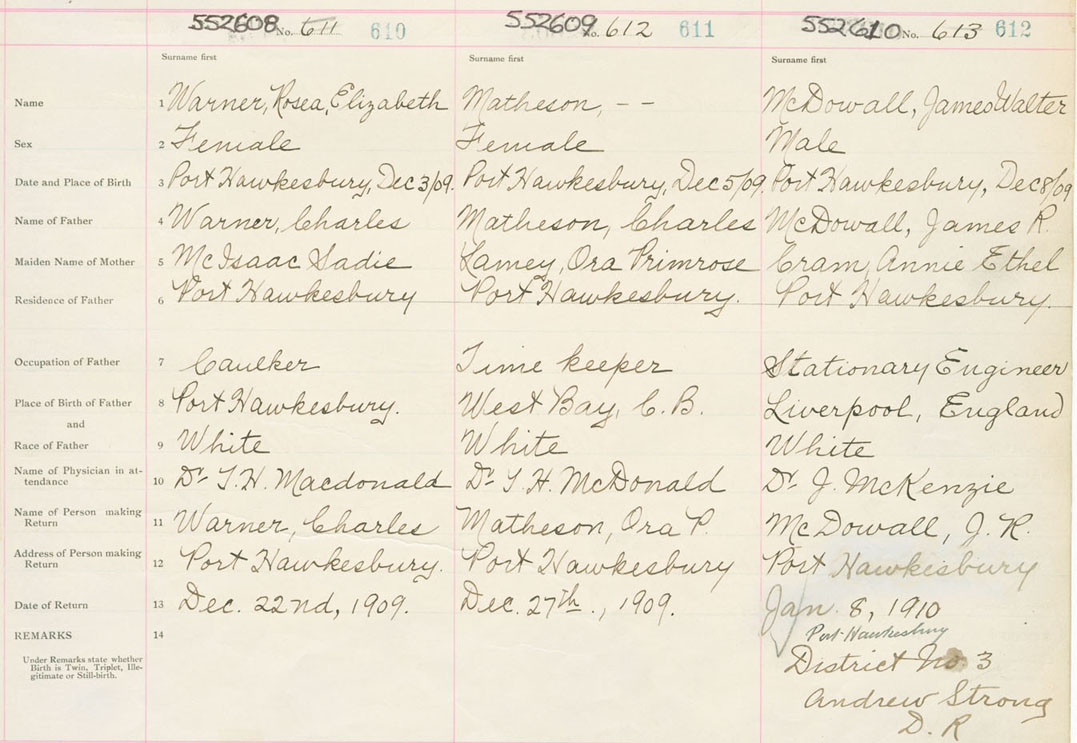 552608 No. 611 610 552609 No. 612 611 552610 No. 613 612
Surname first Surname first Surname first
Name 1 Warner, Rosea, Elizabeth Matheson, -- McDowall, James Walter
Sex 2 Female Female Male
Date and Place of Birth 3 Port Hawkesbury, Dec 3/09. Port Hawkesbury, Dec 5/09. Port Hawkesbury, Dec 8/09
Name of Father 4 Warner, Charles Matheson, Charles McDowall, James R.
Maiden Name of Mother 5 McIsaac Sadie Lamey, Ora Primrose Cram, Annie Ethel
Residence of Father 6 Port Hawkesbury Port Hawkesbury. Port Hawkesbury.
Occupation of Father 7 Caulker Time keeper Stationary Engineer
Place of Birth of Father 8 Port Hawkesbury. West Bay, C.B. Liverpool, England
and
Race of Father 9 White White White
Name of Physician in at-
tendance 10 Dr T.H. Macdonald Dr T.H. McDonald Dr J. McKenzie
Name of Person making
Return 11 Warner, Charles Matheson, Ora P. McDowall, J. R.
Address of Person making
Return 12 Port Hawkesbury. Port Hawkesbury Port Hawkesbury
Date of Return 13 Dec. 22nd, 1909. Dec. 27th., 1909. Jan. 8, 1910
REMARKS 14 Port Hawkesbury
Under Remarks state whether
Birth is Twin, Triplet, Ille-
gitimate or Still-birth.
District No. 3
Andrew Strong
D. R